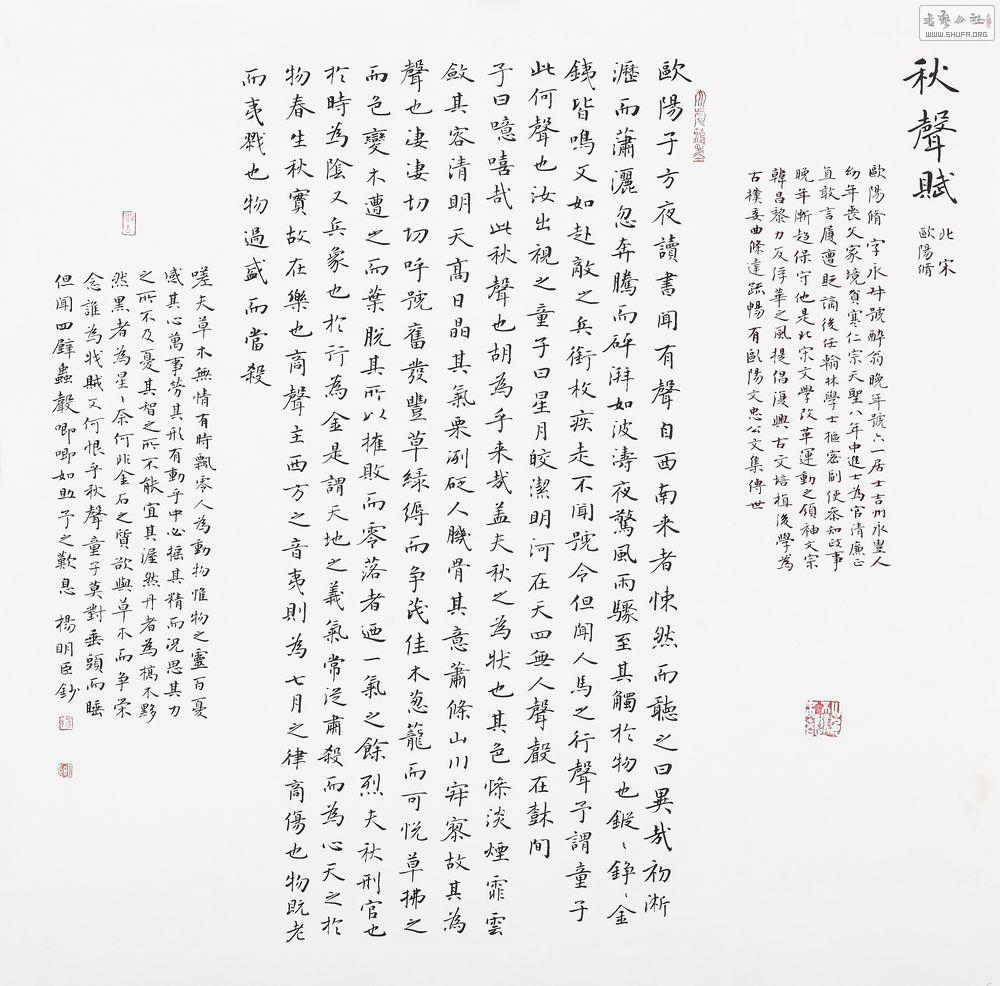 秋聲賦
北宋
歐陽脩
歐陽脩字永叔號醉翁晚年號六一居士吉州永豐人
幼年喪父家境貧寒仁宗天聖八年中進士為官清廉正
直敢言屢遭貶謫後任翰林學士樞密副使參知政事
晚年漸趨保守他是北宋文學改革運動之領袖文宗
韓昌黎力反浮華之風提倡復興古文培植後學為
古樸委曲條達疏暢有歐陽文忠公文集傳世
歐陽子方夜讀書聞有聲自西南来者悚然而聽之曰異哉初淅
瀝而蕭灑忽奔騰而砰湃如波濤夜驚風雨驟至其觸於物也鏦〻錚〻金
鉄皆鳴又如赴敵之兵銜枚疾走不聞號令但聞人馬之行聲予謂童子
此何聲也汝出視之童子曰星月皎潔明河在天四無人聲聲在樹間
予曰噫嘻哉此秋聲也胡為乎来哉盖夫秋之為狀也其色慘淡煙霏雲
斂其容清明天高日晶其氣栗冽砭人膚骨其意蕭條山川寂寥故其為
聲也凄凄切切呼號奮發豐草綠縟而争茂佳木葱蘢而可悦草拂之
而色變木遭之而葉脱其所以摧敗而零落者迺一氣之餘烈夫秋刑官也
於時為陰又兵象也於行為金是謂天地之義氣常從肅殺而為心天之於
物春生秋實故在樂也商聲主西方之音夷則為七月之律商傷也物既老
而夷戮也物過盛而當殺
嗟夫草木無情有時飄零人為動物惟物之靈百憂
感其心萬事勞其形有動乎中必搖其精而況思其力
之所不及憂其智之所不能宜其渥然丹者為槁木黟
然黑者為星〻奈何非金石之質欲與草木而争榮
念誰為戕賊又何恨乎秋聲童子莫對垂頭而睡
但聞四壁蟲聲唧唧如助予之歎息 楊明臣鈔
WWW.SHUFA.ORG